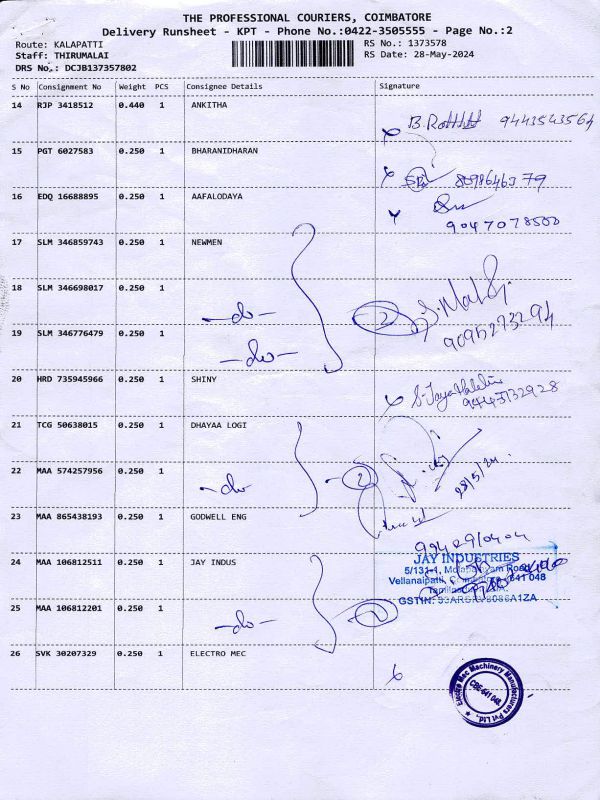 THE PROFESSIONAL COURIERS, COIMBATORE
Delivery Runsheet - KPT - Phone No.:0422-3505555 - Page No.:2
Route: KALAPATTI
RS No.: 1373578
Staff: THIRUMALAI
RS Date: 28-May-2024
DRS No.: DCJB137357802
S No Consignment No Weight PCS Consignee Details Signature
14 RJP 3418512 0.440 1 ANKITHA
9443543564
15 PGT 6027583 0.250 1 BHARANIDHARAN
8098646379
16 EDQ 16688895 0.250 1 AAFALODAYA
9047078500
17 SLM 346859743 0.250 1 NEWMEN
18 SLM 346698017 0.250 1
-do- 2
9095273294
19 SLM 346776479 0.250 1
-do-
20 HRD 735945966 0.250 1 SHINY
21 TCG 50638015 0.250 1 DHAYAA LOGI
22 MAA 574257956 0.250 1
-do- 2
28/5/24
23 MAA 865438193 0.250 1 GODWELL ENG
24 MAA 106812511 0.250 1 JAY INDUS
JAY INDUSTRIES
5/131-1, Road,
Vellanaipatti, 641 048
25 MAA 106812201 0.250 1
GSTIN:
-do- 2
26 SVK 30207329 0.250 1 ELECTRO MEC
Electro Mec Machinery Manufacturers Pvt Ltd.,
CBE-641 048.